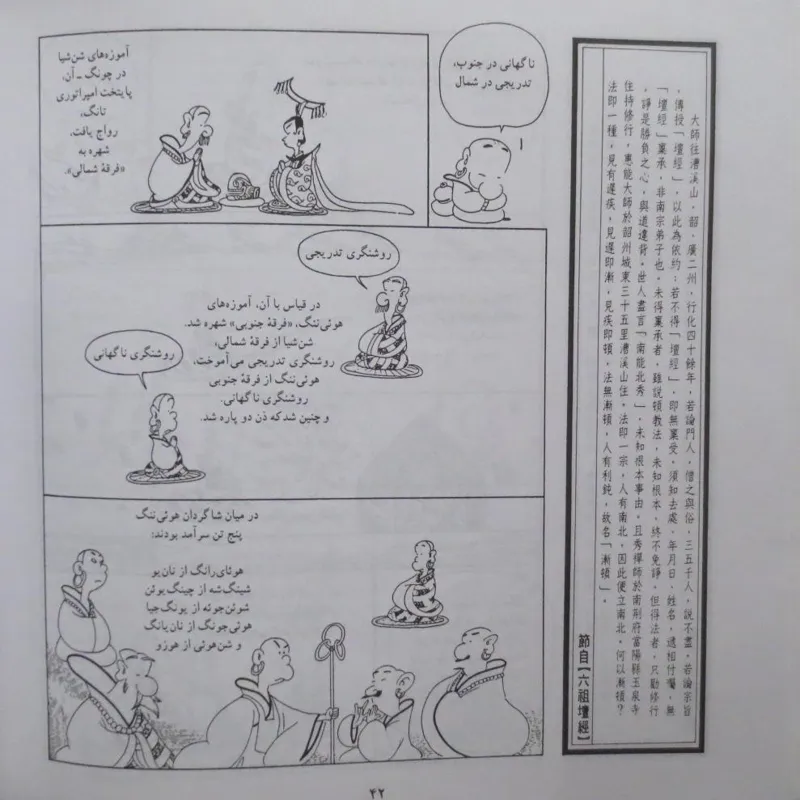 大師往漕溪山,韶、廣二州,行化四十餘年,若論門人,僧之與俗,三五千人,說不盡,若論宗旨
,傳授「壇經」,以此為依約;若不得「壇經」,即無稟受。須知去處、年月日、姓名,遞相付囑,無
「壇經」稟承,非南宗弟子也。未得稟承者,雖說頓教法,未知根本,終不免諍。但得法者,只勤修行
,諍是勝負之心,與道違背。世人盡言「南能北秀」,未知根本事由,且秀禪師於南荊府當陽縣玉泉寺
住持修行,惠能大師於韶州城東三十五里漕溪山住。法即一宗,人有南北,因此便立南北。何以漸頓?
法即一種,見有遲疾,見遲即漸,見疾即頓,法無漸頓,人有利鈍,故名「漸頓」。
節自【六祖壇經】
ناگهانی در جنوب،
تدریجی در شمال
آموزه‌های شن‌شیا
در چونگ ـ آن،
پایتخت امپراتوری
تانگ،
رواج یافت،
شهره به
«فرقهٔ شمالی».
روشنگری تدریجی
در قیاس با آن، آموزه‌های
هوئی‌ننگ، «فرقهٔ جنوبی» شهره شد.
شن‌شیا از فرقهٔ شمالی،
روشنگری تدریجی می‌آموخت،
هوئی‌ننگ از فرقهٔ جنوبی
روشنگری ناگهانی.
و چنین شد که ذن دو پاره شد.
روشنگری ناگهانی
در میان شاگردان هوئی‌ننگ
پنج تن سرآمد بودند:
هوئای‌رانگ از نان‌یو
شینگ‌شه از چینگ‌یوئن
شوئن‌جوئه از یونگ‌جیا
هوئی‌جونگ از نان‌یانگ
و شن‌هوئی از هوزو
۴۲